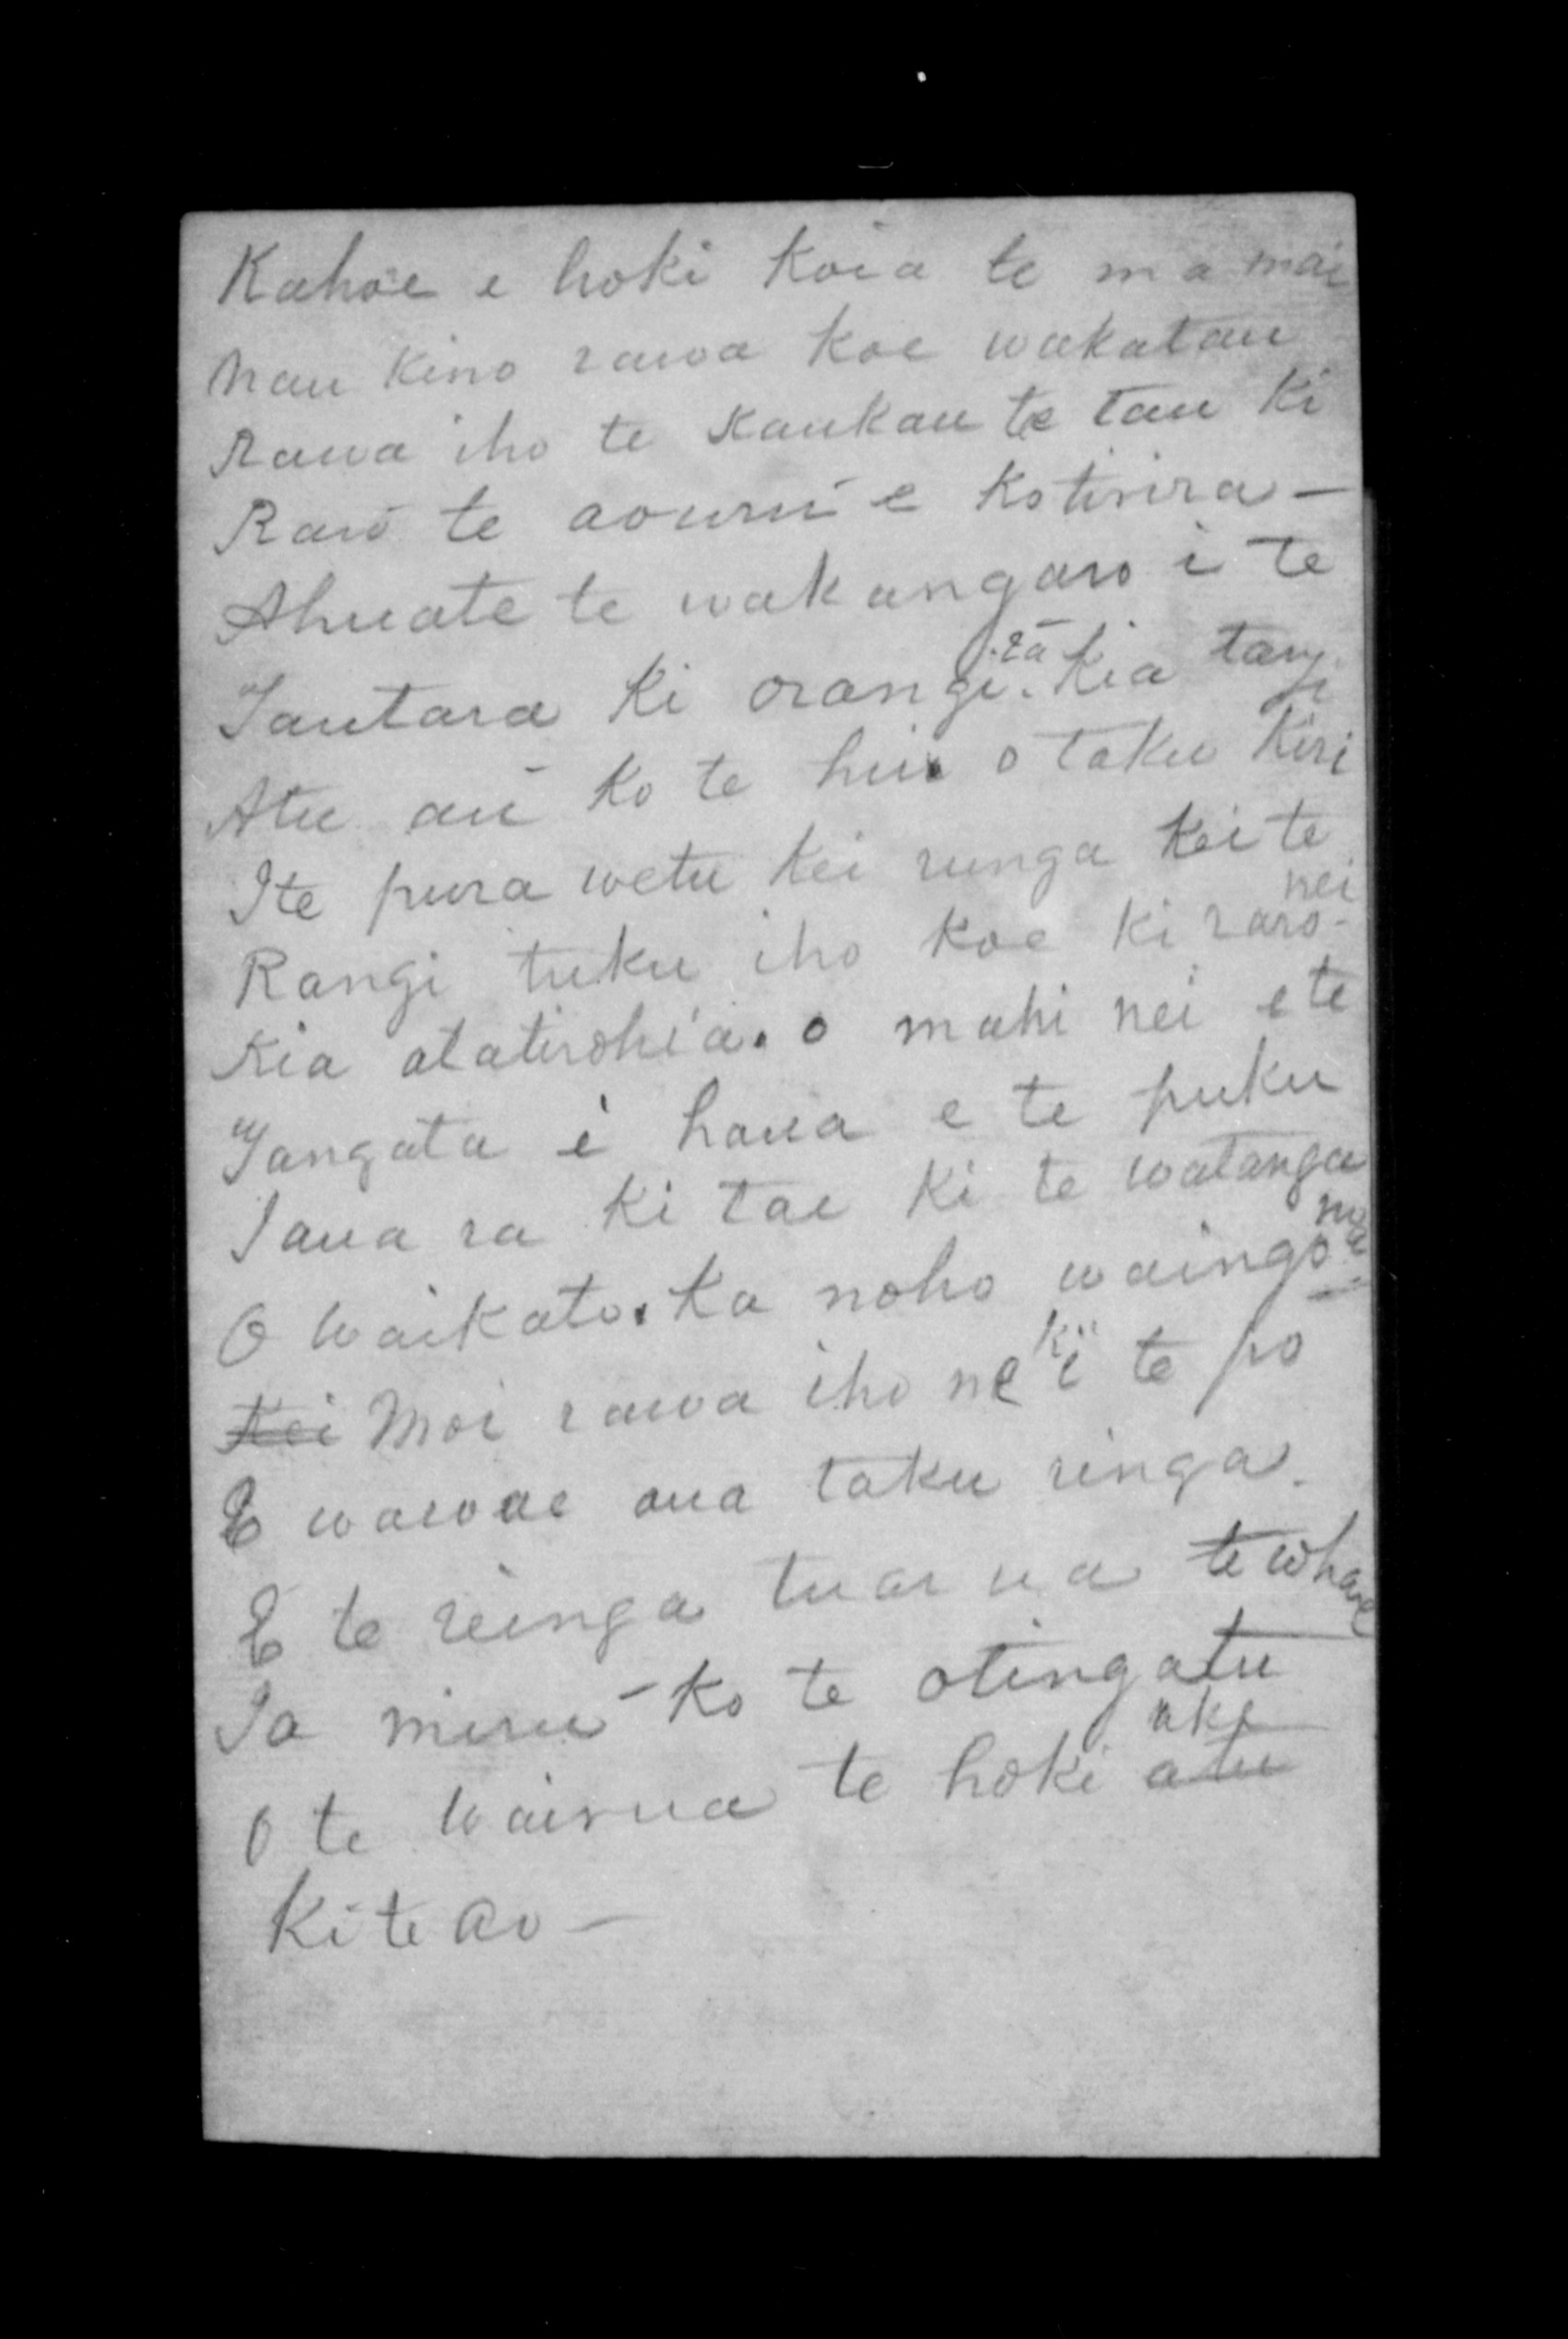 Kahoe e hoki koia te ma mai
Nau kino rawa koe wakatau
Rawa iho te kaukau te tau ki
Raro te aouru e kotirira —
Ahuate te wakangaro i te
Tautara ki orangi. ra Kia tangi
Atu au ko te hu o taku kiri
Ite pura wetu kei runga kei te
Rangi tuku iho koe ki raro nei
Kia atatirohia. o mahi nei e te
Tangata i haua e te puku
Taua ra ki tae ki te watanga
O Waikato. Ka noho waingo noa
Kei Moi rawa iho ne ki i te po
E wawae ana taku ringa.
E te reinga tuarua te whare
Ta miru — ko te otingatu
O te Wairua te hoki atu ake
Ki te ao —